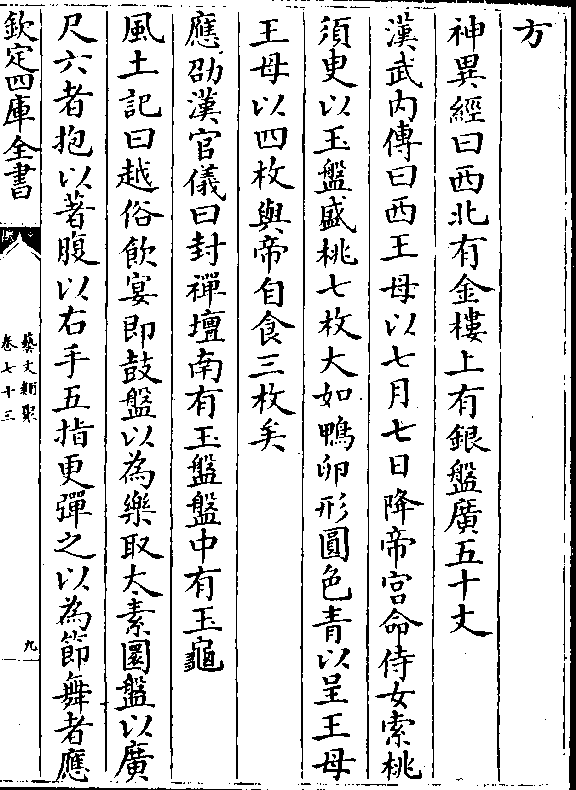 方
神異經曰西北有金樓上有銀盤廣五十丈
漢武内傳曰西王母以七月七日降帝宫命侍女索桃
須史以玉盤盛桃七枚大如鴨卵形圓色青以呈王母
王母以四枚與帝自食三枚矣
應劭漢官儀曰封禪壇南有玉盤盤中有玉龜
風土記曰越俗飲宴即鼓盤以為樂取太素圜盤以廣
尺六者抱以著腹以右手五指更彈之以為節舞者應
欽定四庫全書
藝文類聚
卷七十三
九